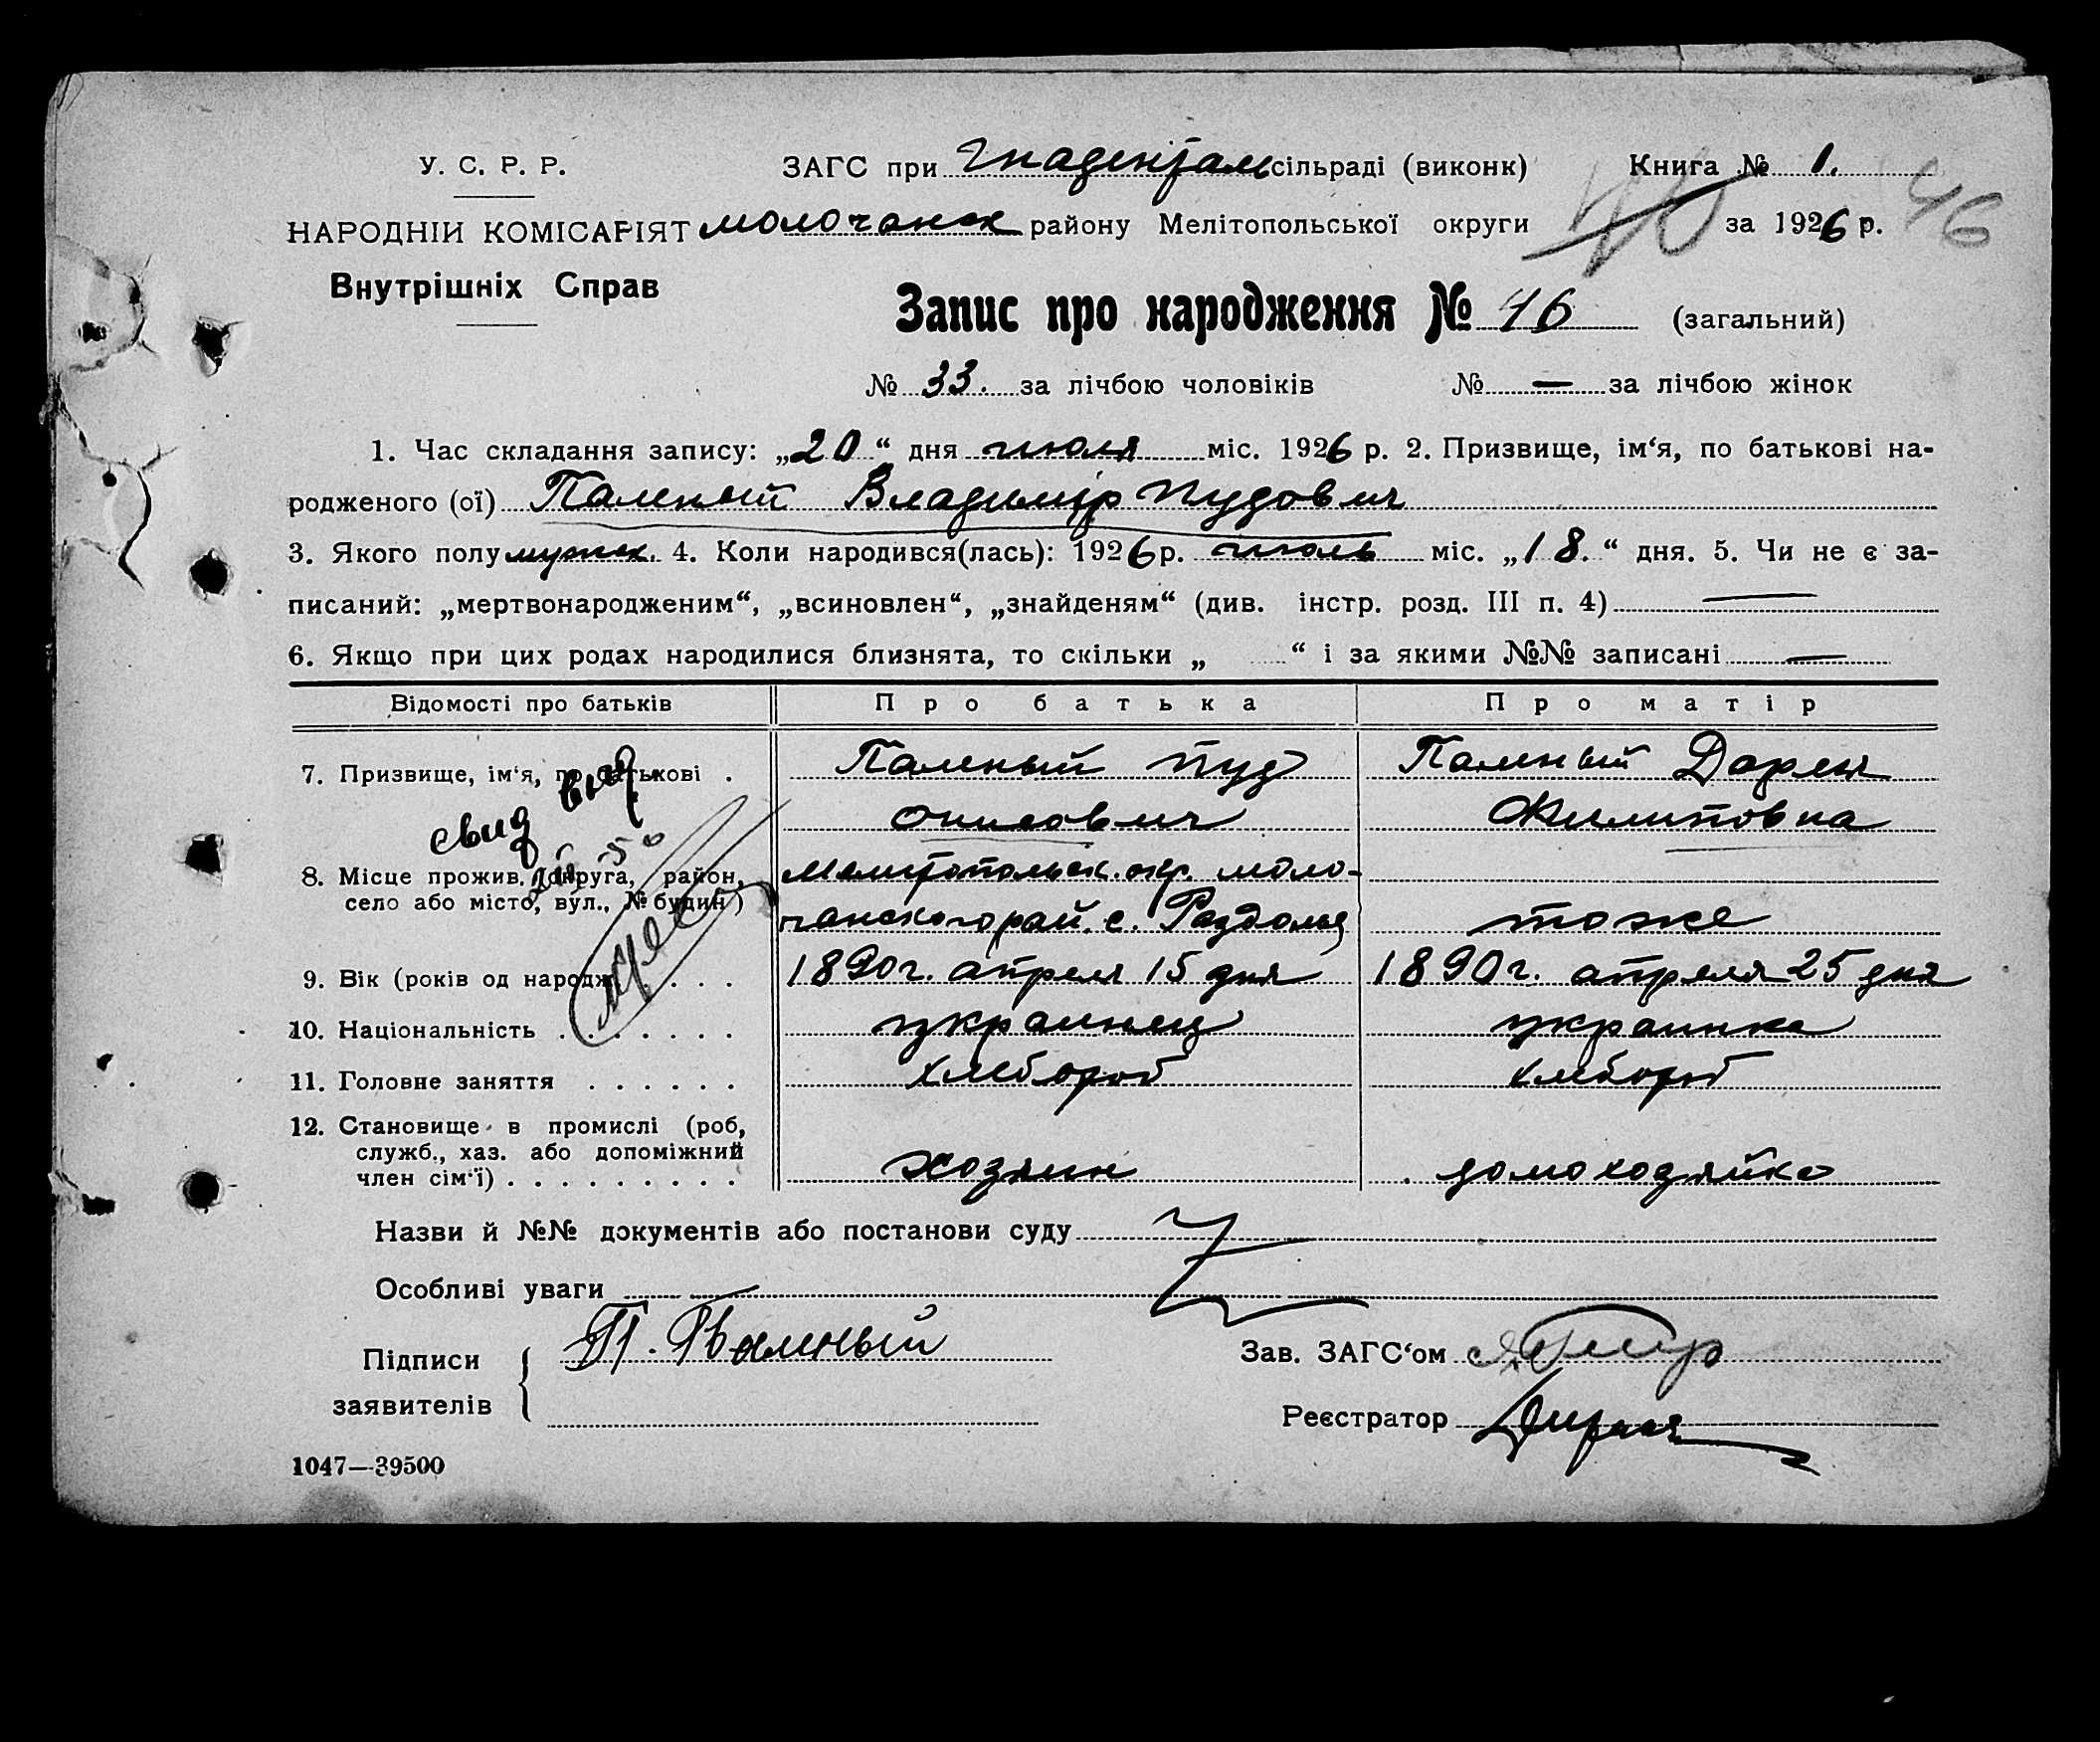 У. С. Р. Р.
ЗАГС при Гнадентал сільраді (виконк) Книга № 1.
46
НАРОДНІЙ КОМІСАРІЯТ Молочанск району Мелітопольської округи за 1926 р.
Внутрішніх Справ
Запис про народження № 46 (загальний)
№ 33. за лічбою чоловіків № — за лічбою жінок
1. Час складання запису: „20“ дня июля міс. 1926 р. 2. Призвище, ім‘я, по батькові на-
родженого (ої) Паленый Владимір Пудович
3. Якого полу мужск. 4. Коли народився(лась): 1926 р. июль міс. „18.“ дня. 5. Чи не є за-
писаний: „мертвонародженим“, „всиновлен“, „знайденям“ (див. інстр. розд. III п. 4) —
6. Якщо при цих родах народилися близнята, то скільки „ “ і за якими №№ записані —
Відомості про батьків Про батька Про матір
7. Призвище, ім‘я, по батькові . Паленый Пуд Паленый Дарья
свид выд
Филиповна
8. Місце прожив. (округа, район, Мелитопольск. окр. моло-
село або місто, вул., № будин) чанского рай. с. Раздолья тоже
9. Вік (років од народж. . . . 1890 г. апреля 15 дня 1890 г. апреля 25 дня
10. Національність . . . . . . . украинец украинка
11. Головне заняття . . . . . . хлебороб хлебороб
12. Становище в промислі (роб,
служб., хаз. або допоміжний
член сім‘ї) . . . . . . . . . хозяин домохозяйка
Назви й №№ документів або постанови суду
Особливі уваги
Підписи П. Паленый Зав. ЗАГС‘ом
заявителів Реєстратор
1047—39500